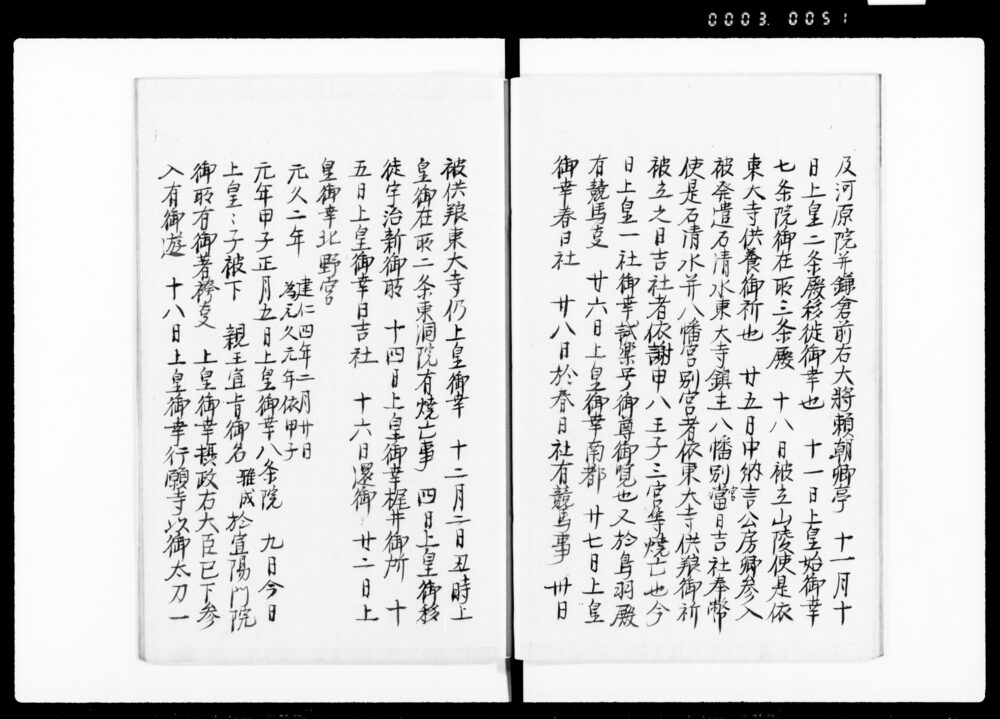 0003 0051
及河原院并鎌倉前右大將頼朝卿亭　十一月十
日上皇二条殿移徙御幸也　十一日上皇始御幸
七条院御在所三条殿　十八日被立山陵使是依
東大寺供養御祈也　廿五日中納言公房卿参入
被発遣石清水東大寺鎮主八幡別當宮日吉社奉幣
使是石清水并八幡宮別宮者依東大寺供養御祈
被立之日吉社者依謝申八王子三宮等焼亡也今
日上皇一社御幸試楽予御尋御覧也又於鳥羽殿
有競馬事　廿六日上皇御幸南都　廿七日上皇
御幸春日社　廿八日於春日社有競馬事　卅日
被供養東大寺仍上皇御幸　十二月二日丑時上
皇御在所二条東洞院有焼亡事　四日上皇御移
徙宇治新御所　十四日上皇御幸梶井御所　十
五日上皇御幸日吉社　十六日還御　廿二日上
皇御幸北野宮
元久二年　建仁四年二月廿日
為元久元年依甲子
元年甲子正月五日上皇御幸八条院　九日今日
上皇〻子被下　親王宣旨御名雅成於宣陽門院
御所有御著袴事　上皇御幸摂政右大臣已下参
入有御遊　十八日上皇御幸行願寺以御太刀一